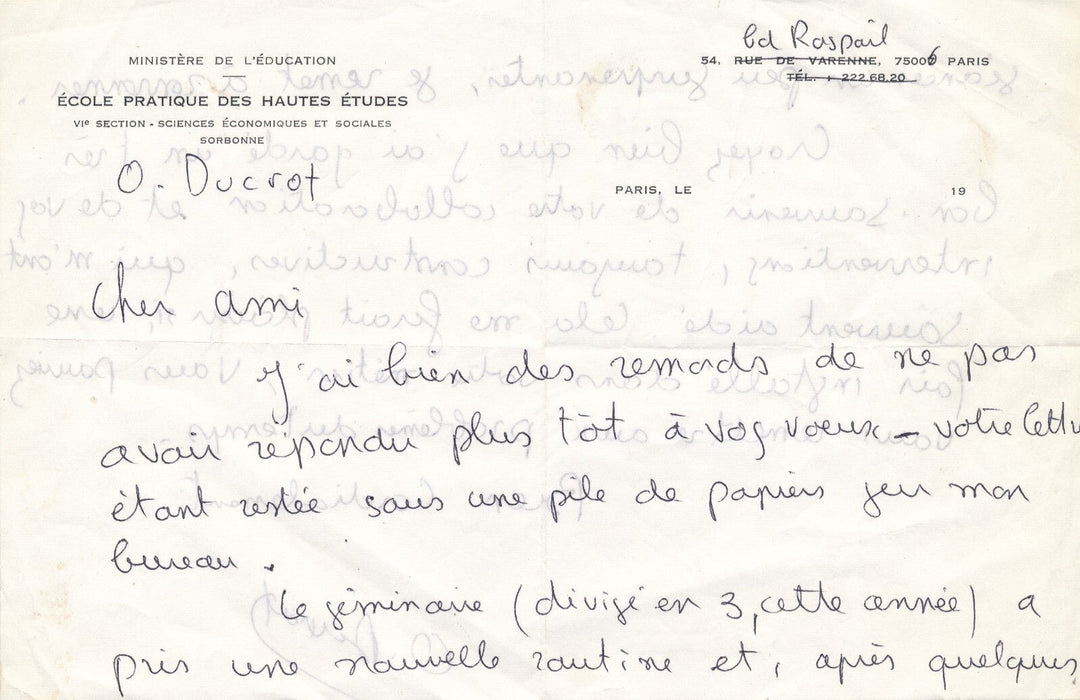 MINISTÈRE DE L'ÉDUCATION
ÉCOLE PRATIQUE DES HAUTES ÉTUDES
VIe SECTION - SCIENCES ÉCONOMIQUES ET SOCIALES
SORBONNE
O. Ducrot
bd Raspail
54, RUE DE VARENNE, 75006 PARIS
TÉL. : 222.68.20
PARIS, LE 19
Cher ami
J'ai bien des remords de ne pas
avoir répondu plus tôt à vos voeux - votre lettre
étant restée sous une pile de papiers sur mon
bureau.
Le séminaire (divisé en 3, cette année) a
pris une nouvelle routine et, après quelques